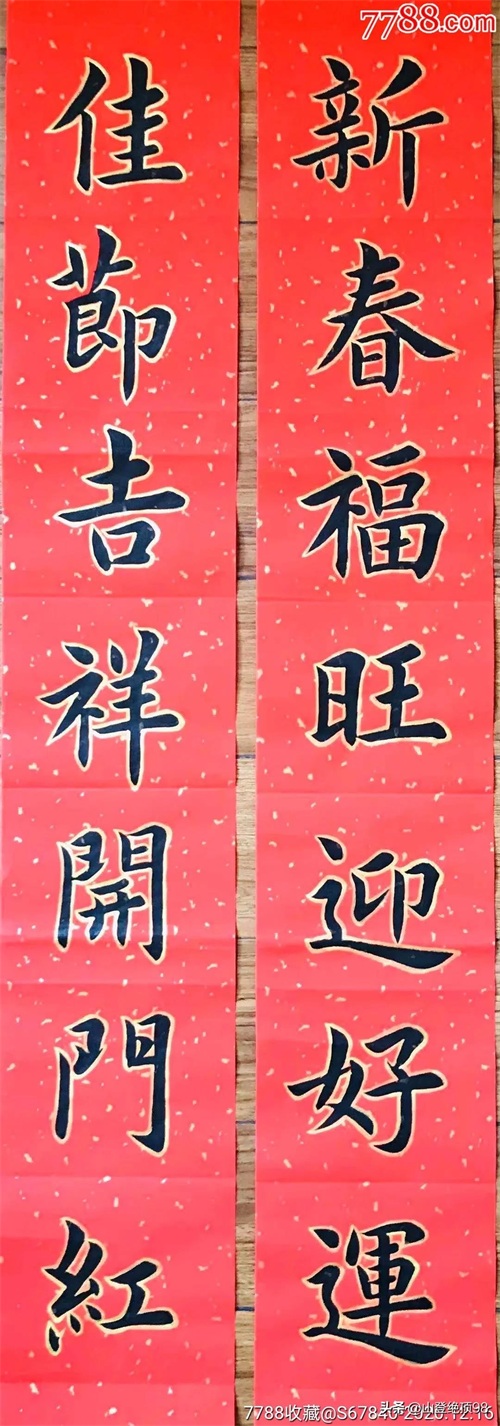 7788.com
新春福旺迎好運
佳節吉祥開門紅
7788收藏@S67840 2020.12.16
头条@山登绝顶98